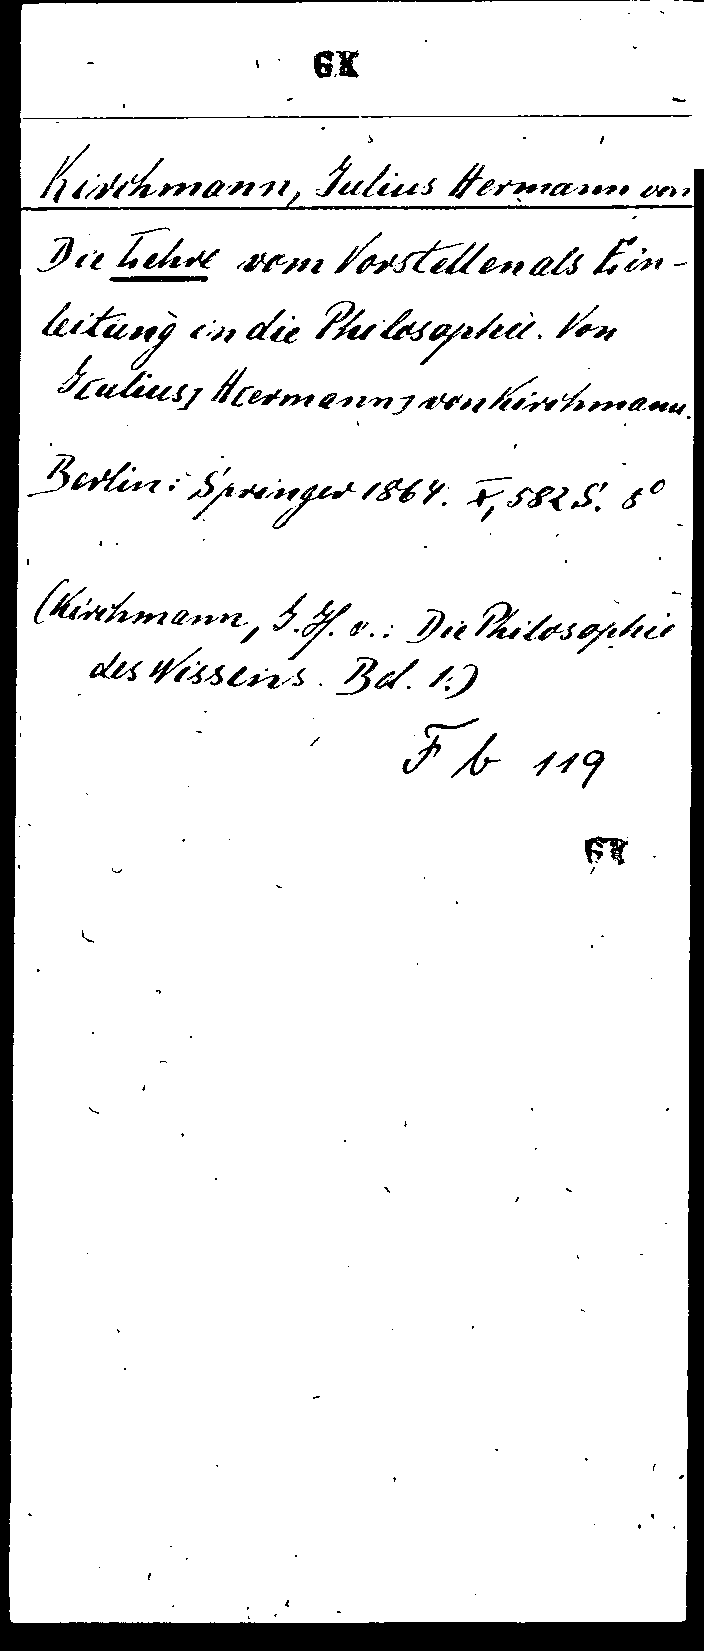 GK
Kirchmann, Julius Hermann von
Die Lehre vom Vorstellen als Ein-
leitung in die Philosophie. Von
J[ulius] H[ermann] von Kirchmann.
Berlin: Springer 1864. X, 582 S. 8°
(Kirchmann, J. H. v.: Die Philosophie
des Wissens. Bd. 1.)
F b 119
GK